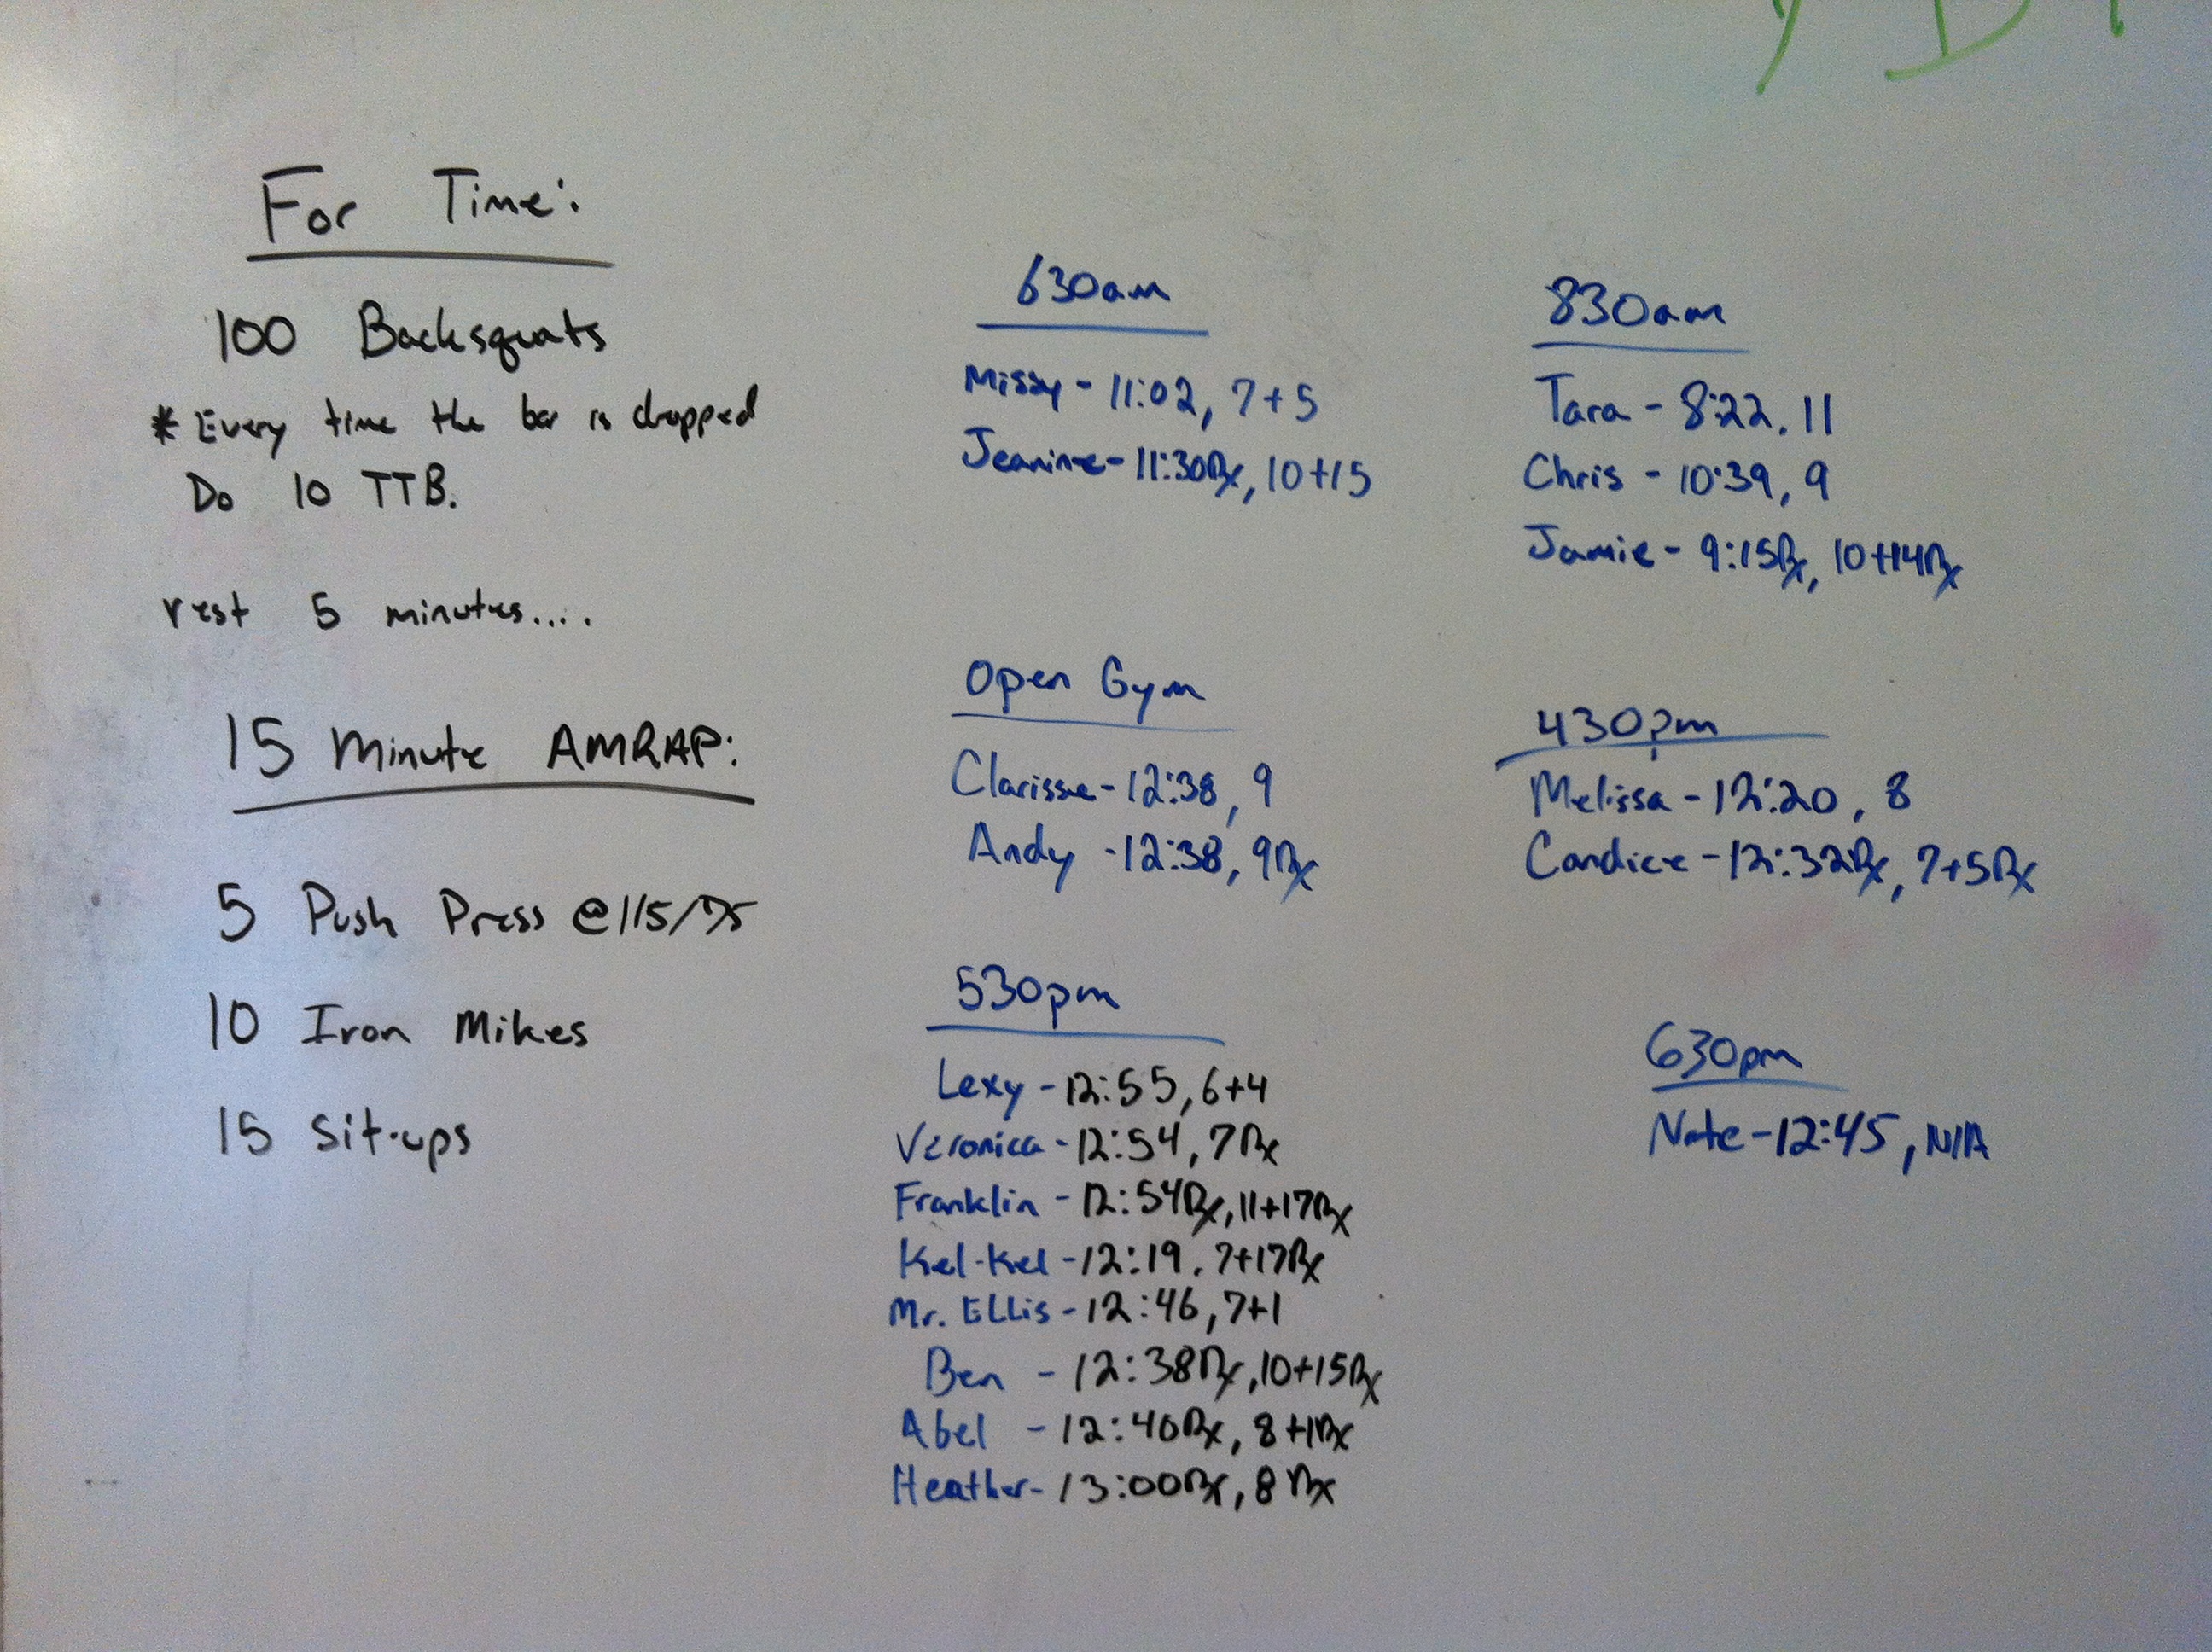 For Time:
100 Backsquats
* Every time the bar is dropped
Do 10 TTB.
rest 5 minutes....
15 Minute AMRAP:
5 Push Press @115/75
10 Iron Mikes
15 Sit-ups
630am
Missy - 11:02, 7+5
Jeanine - 11:30Rx, 10+15
830am
Tara - 8:22, 11
Chris - 10:39, 9
Jamie - 9:15Rx, 10+14Rx
Open Gym
Clarisse - 12:38, 9
Andy - 12:38, 9Rx
430pm
Melissa - 12:20, 8
Candice - 12:32Rx, 7+5Rx
530pm
Lexy - 12:55, 6+4
Veronica - 12:54, 7Rx
Franklin - 12:54Rx, 11+17Rx
Kel-Kel - 12:19, 7+17Rx
Mr. Ellis - 12:46, 7+1
Ben - 12:38Rx, 10+15Rx
Abel - 12:40Rx, 8+1Rx
Heather - 13:00Rx, 8 Rx
630pm
Nate - 12:45, N/A